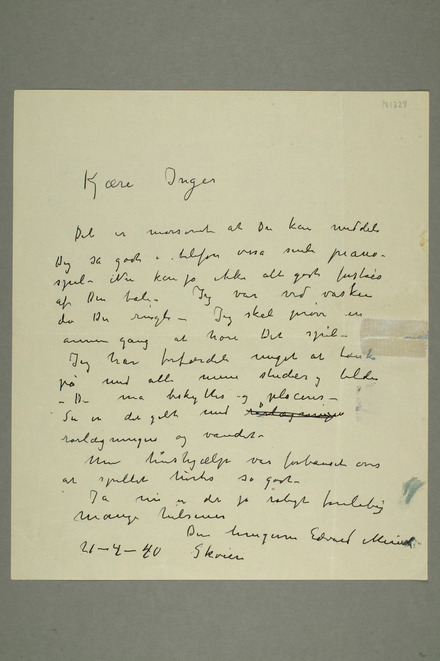 N1229
Kjære Inger
Det er morsomt at Du kan meddele
Dig så godt i telefon ossa smle piano-
spil – Nu kan jo ikke alt godt
af Din bab – Jeg var ved vasken
da Du ringte – Jeg skal prøve en
annen gang at høre Det spil –
Jeg har forfærdelig meget at tænke
på med alle mine studier og bilder
– De må beskyttes – og placeres –
Så er det gelt med
rørlægningen og vandet –
Min hushjælp var forbauset over
at spillet hørtes så godt –
Ja nu er det jo roligt foreløbig
Mange hilsener
Din hengivne Edvard Munch
21–4–40 Skøien